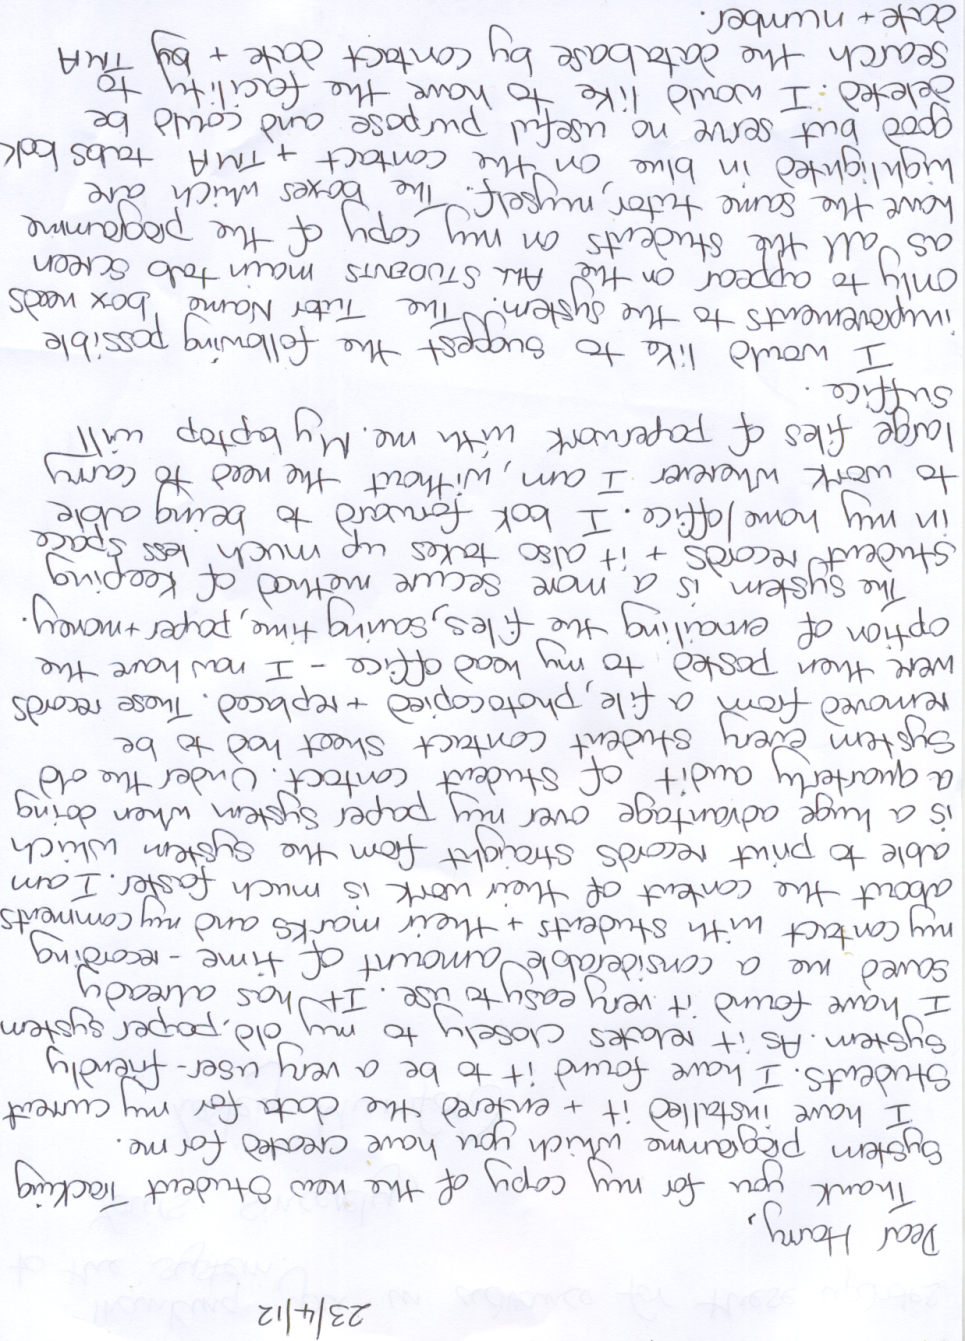 23/4/12
Dear Harry,
Thank you for my copy of the new Student Tracking
System programme which you have created for me.
I have installed it + entered the data for my current
Students. I have found it to be a very user-friendly
System. As it relates closely to my old, paper system
I have found it very easy to use. It has already
saved me a considerable amount of time - recording
my contact with students + their marks and my comments
about the content of their work is much faster. I am
able to print records straight from the system which
is a huge advantage over my paper system when doing
a quarterly audit of student contact. Under the old
System every student contact sheet had to be
removed from a file, photocopied + replaced. These records
were then posted to my head office - I now have the
option of emailing the files, saving time, paper + money.
The system is a more secure method of keeping
Student records + it also takes up much less space
in my home/office. I look forward to being able
to work wherever I am, without the need to carry
large files of paperwork with me. My laptop will
suffice.
I would like to suggest the following possible
improvements to the system. The Tutor Name box needs
only to appear on the ALL STUDENTS main tab screen
as all the students on my copy of the programme
have the same tutor, myself. The boxes which are
highlighted in blue on the contact + TMA tabs look
good but serve no useful purpose and could be
deleted. I would like to have the facility to
search the database by contact date + by TMA
date + number.
Thanking you in advance for these updates
to the system.
Yours sincerely